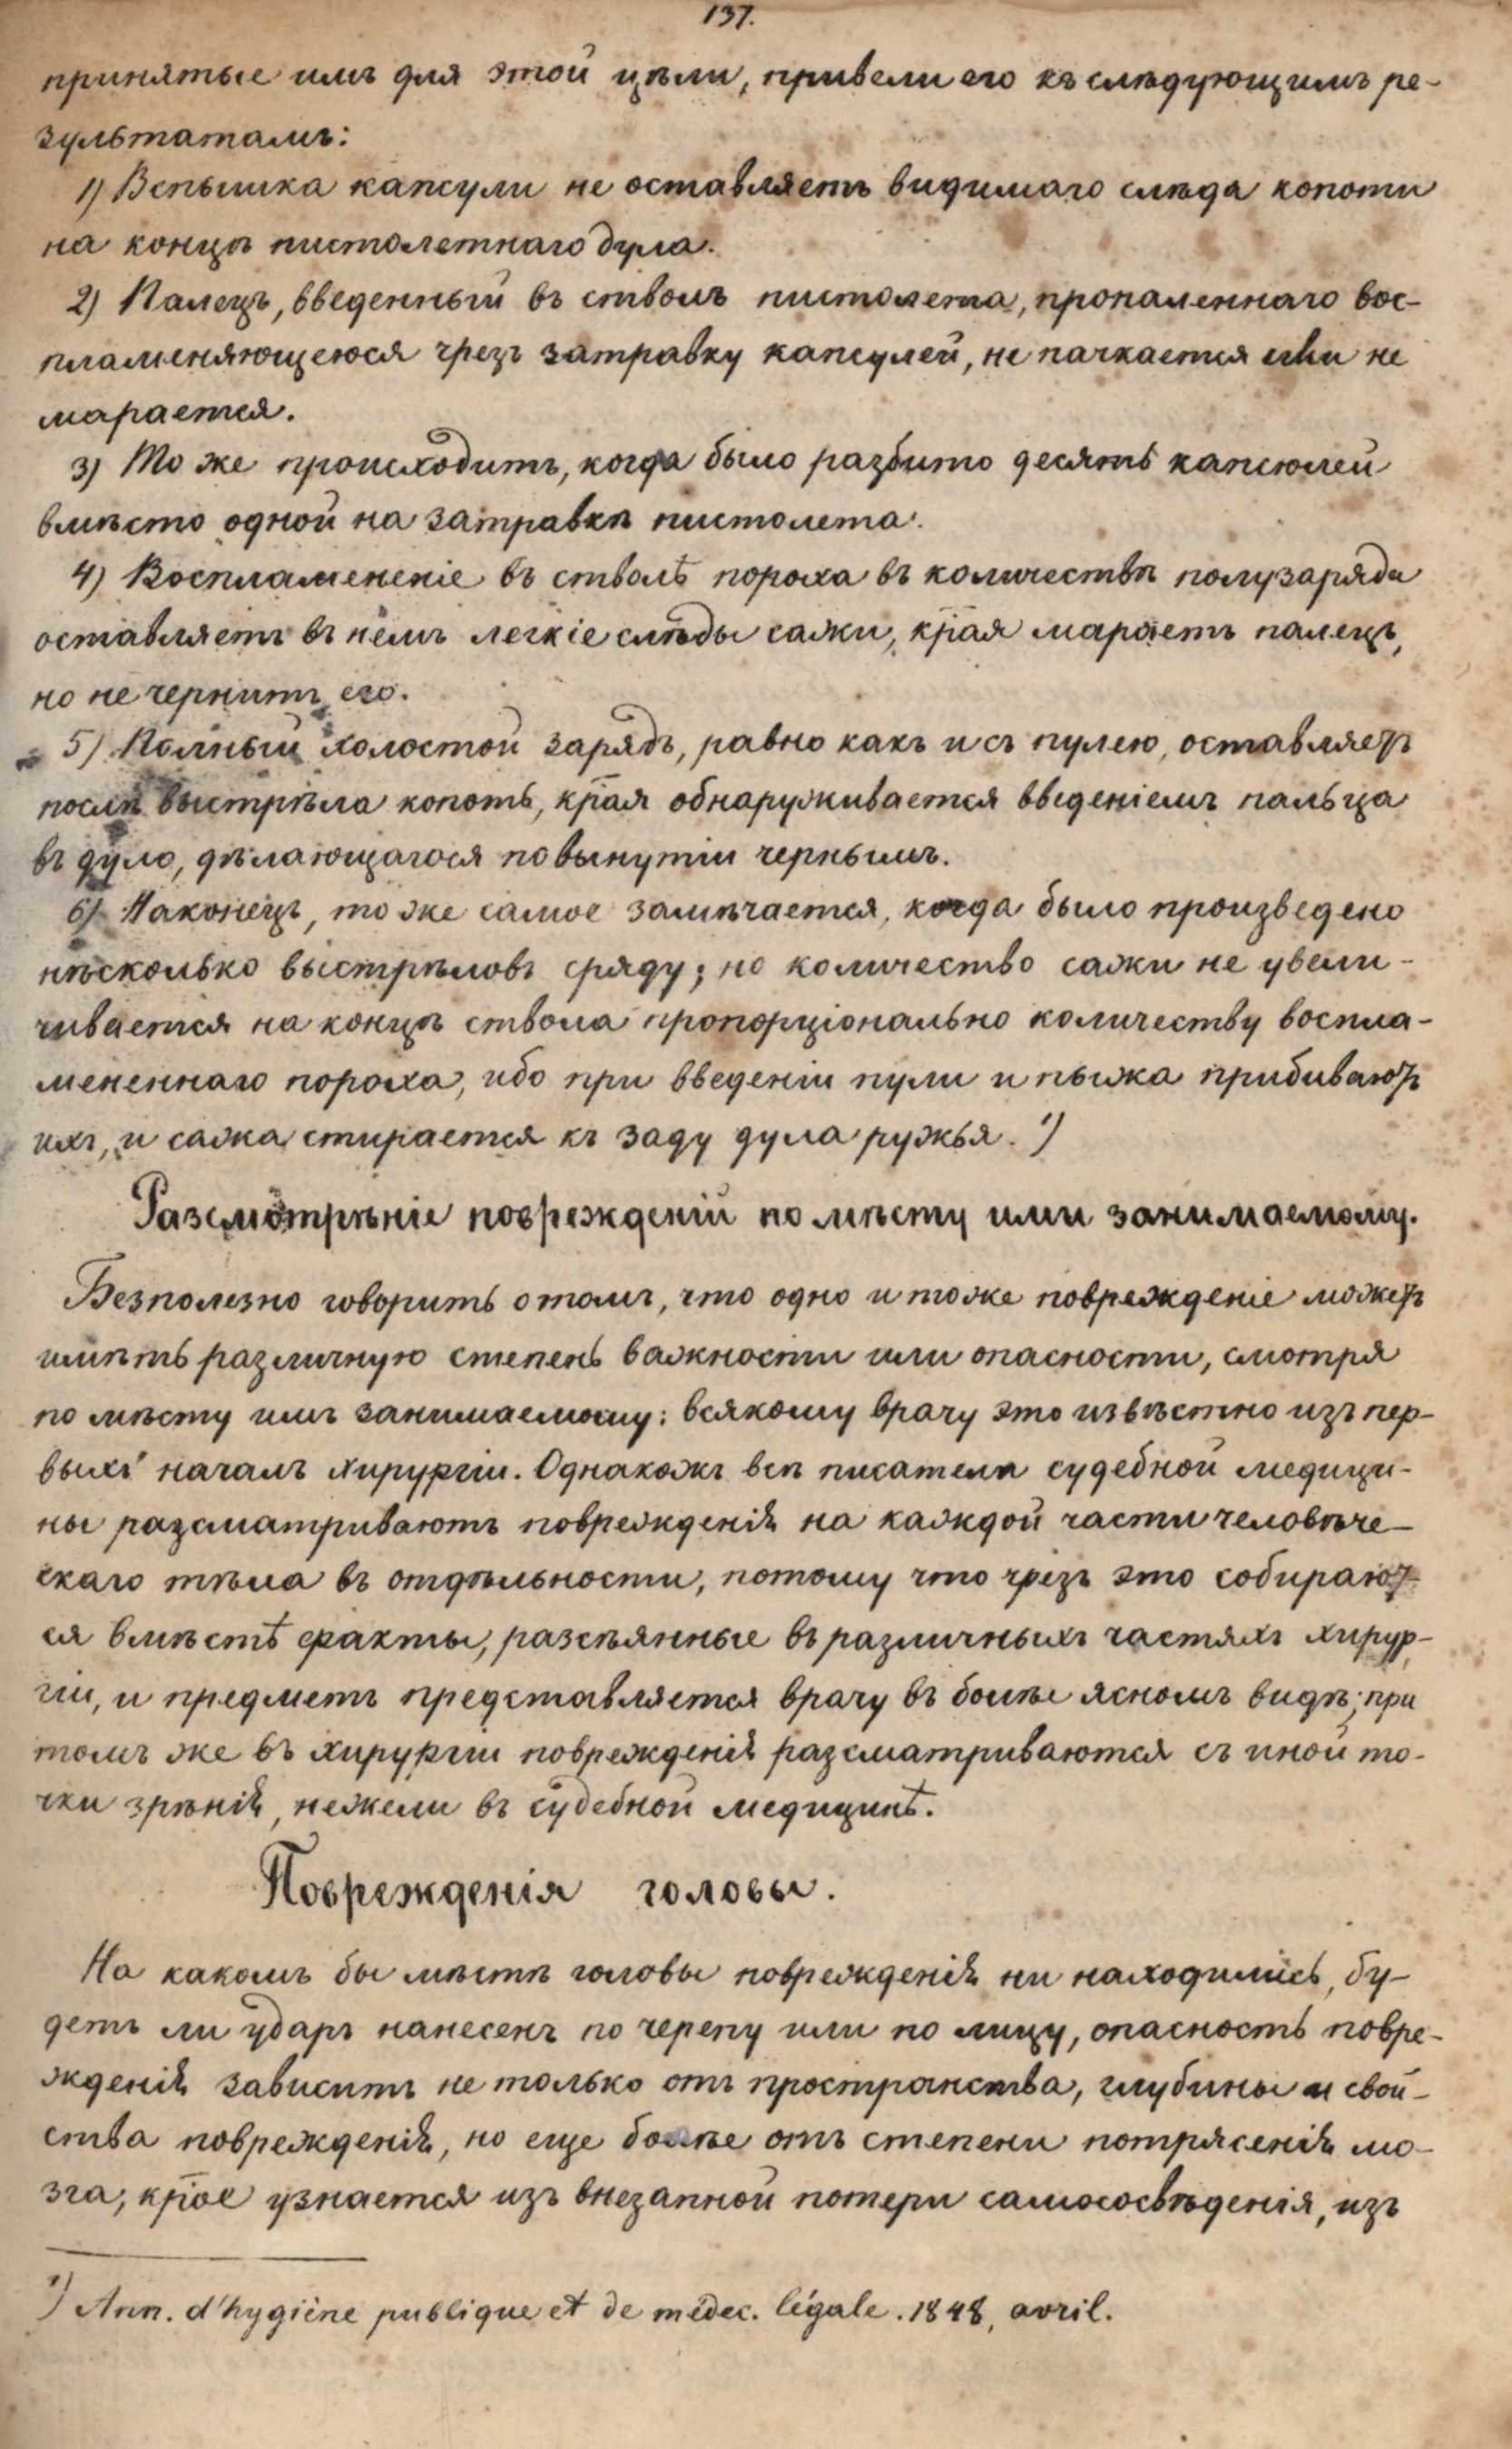 137.
принятые имъ для этой цѣли, привели его къ слѣдующимъ ре-
зультатамъ:
1) Вспышка капсули не оставляетъ видимаго слѣда копоти
на концѣ пистолетнаго дула.
2) Палецъ, введенный въ стволъ пистолета, пропаленнаго вос-
пламеняющеюся чрезъ затравку капсулей, не пачкается или не
марается.
3) То же происходитъ, когда было разбито десять капсюлей
вмѣсто одной на затравкѣ пистолета.
4) Воспламененіе въ стволѣ пороха въ количествѣ полузаряда
оставляетъ въ немъ легкіе слѣды сажи, края мараетъ палецъ,
но не чернитъ его.
5) Полный холостой зарядъ, равно какъ и съ пулею, оставляетъ
послѣ выстрѣла копоть, края обнаруживается введеніемъ пальца
въ дуло, дѣлающагося по вынутіи чернымъ.
6) Наконецъ, то же самое замѣчается, когда было произведено
нѣсколько выстрѣловъ сряду; но количество сажи не увели-
чивается на концѣ ствола пропорціонально количеству воспла-
мененнаго пороха, ибо при введеніи пули и пыжа прибиваютъ
ихъ, и сажа стирается къ заду дула ружья. ¹)
Разсмотрѣніе поврежденій по мѣсту ими занимаемому.
Безполезно говорить о томъ, что одно и тоже поврежденіе можетъ
имѣть различную степень важности или опасности, смотря
по мѣсту имъ занимаемому: всякому врачу это извѣстно изъ пер-
выхъ началъ хирургіи. Однакожъ всѣ писатели судебной медици-
ны разсматриваютъ поврежденія на каждой части человѣче-
скаго тѣла въ отдѣльности, потому что чрезъ это собирают-
ся вмѣстѣ факты, разсѣянные въ различныхъ частяхъ хирур-
гіи, и предметъ представляется врачу въ болѣе ясномъ видѣ; при
томъ же въ хирургіи поврежденія разсматриваются съ иной то-
чки зрѣнія, нежели въ судебной медицинѣ.
Поврежденія головы.
На какомъ бы мѣстѣ головы поврежденія ни находились, бу-
детъ ли ударъ нанесенъ по черепу или по лицу, опасность повре-
жденія зависитъ не только отъ пространства, глубины и свой-
ства поврежденія, но еще болѣе отъ степени потрясенія мо-
зга, крое узнается изъ внезапной потери самосвѣденія, изъ
¹) Ann. d'hygiène publique et de médec. légale. 1848, avril.